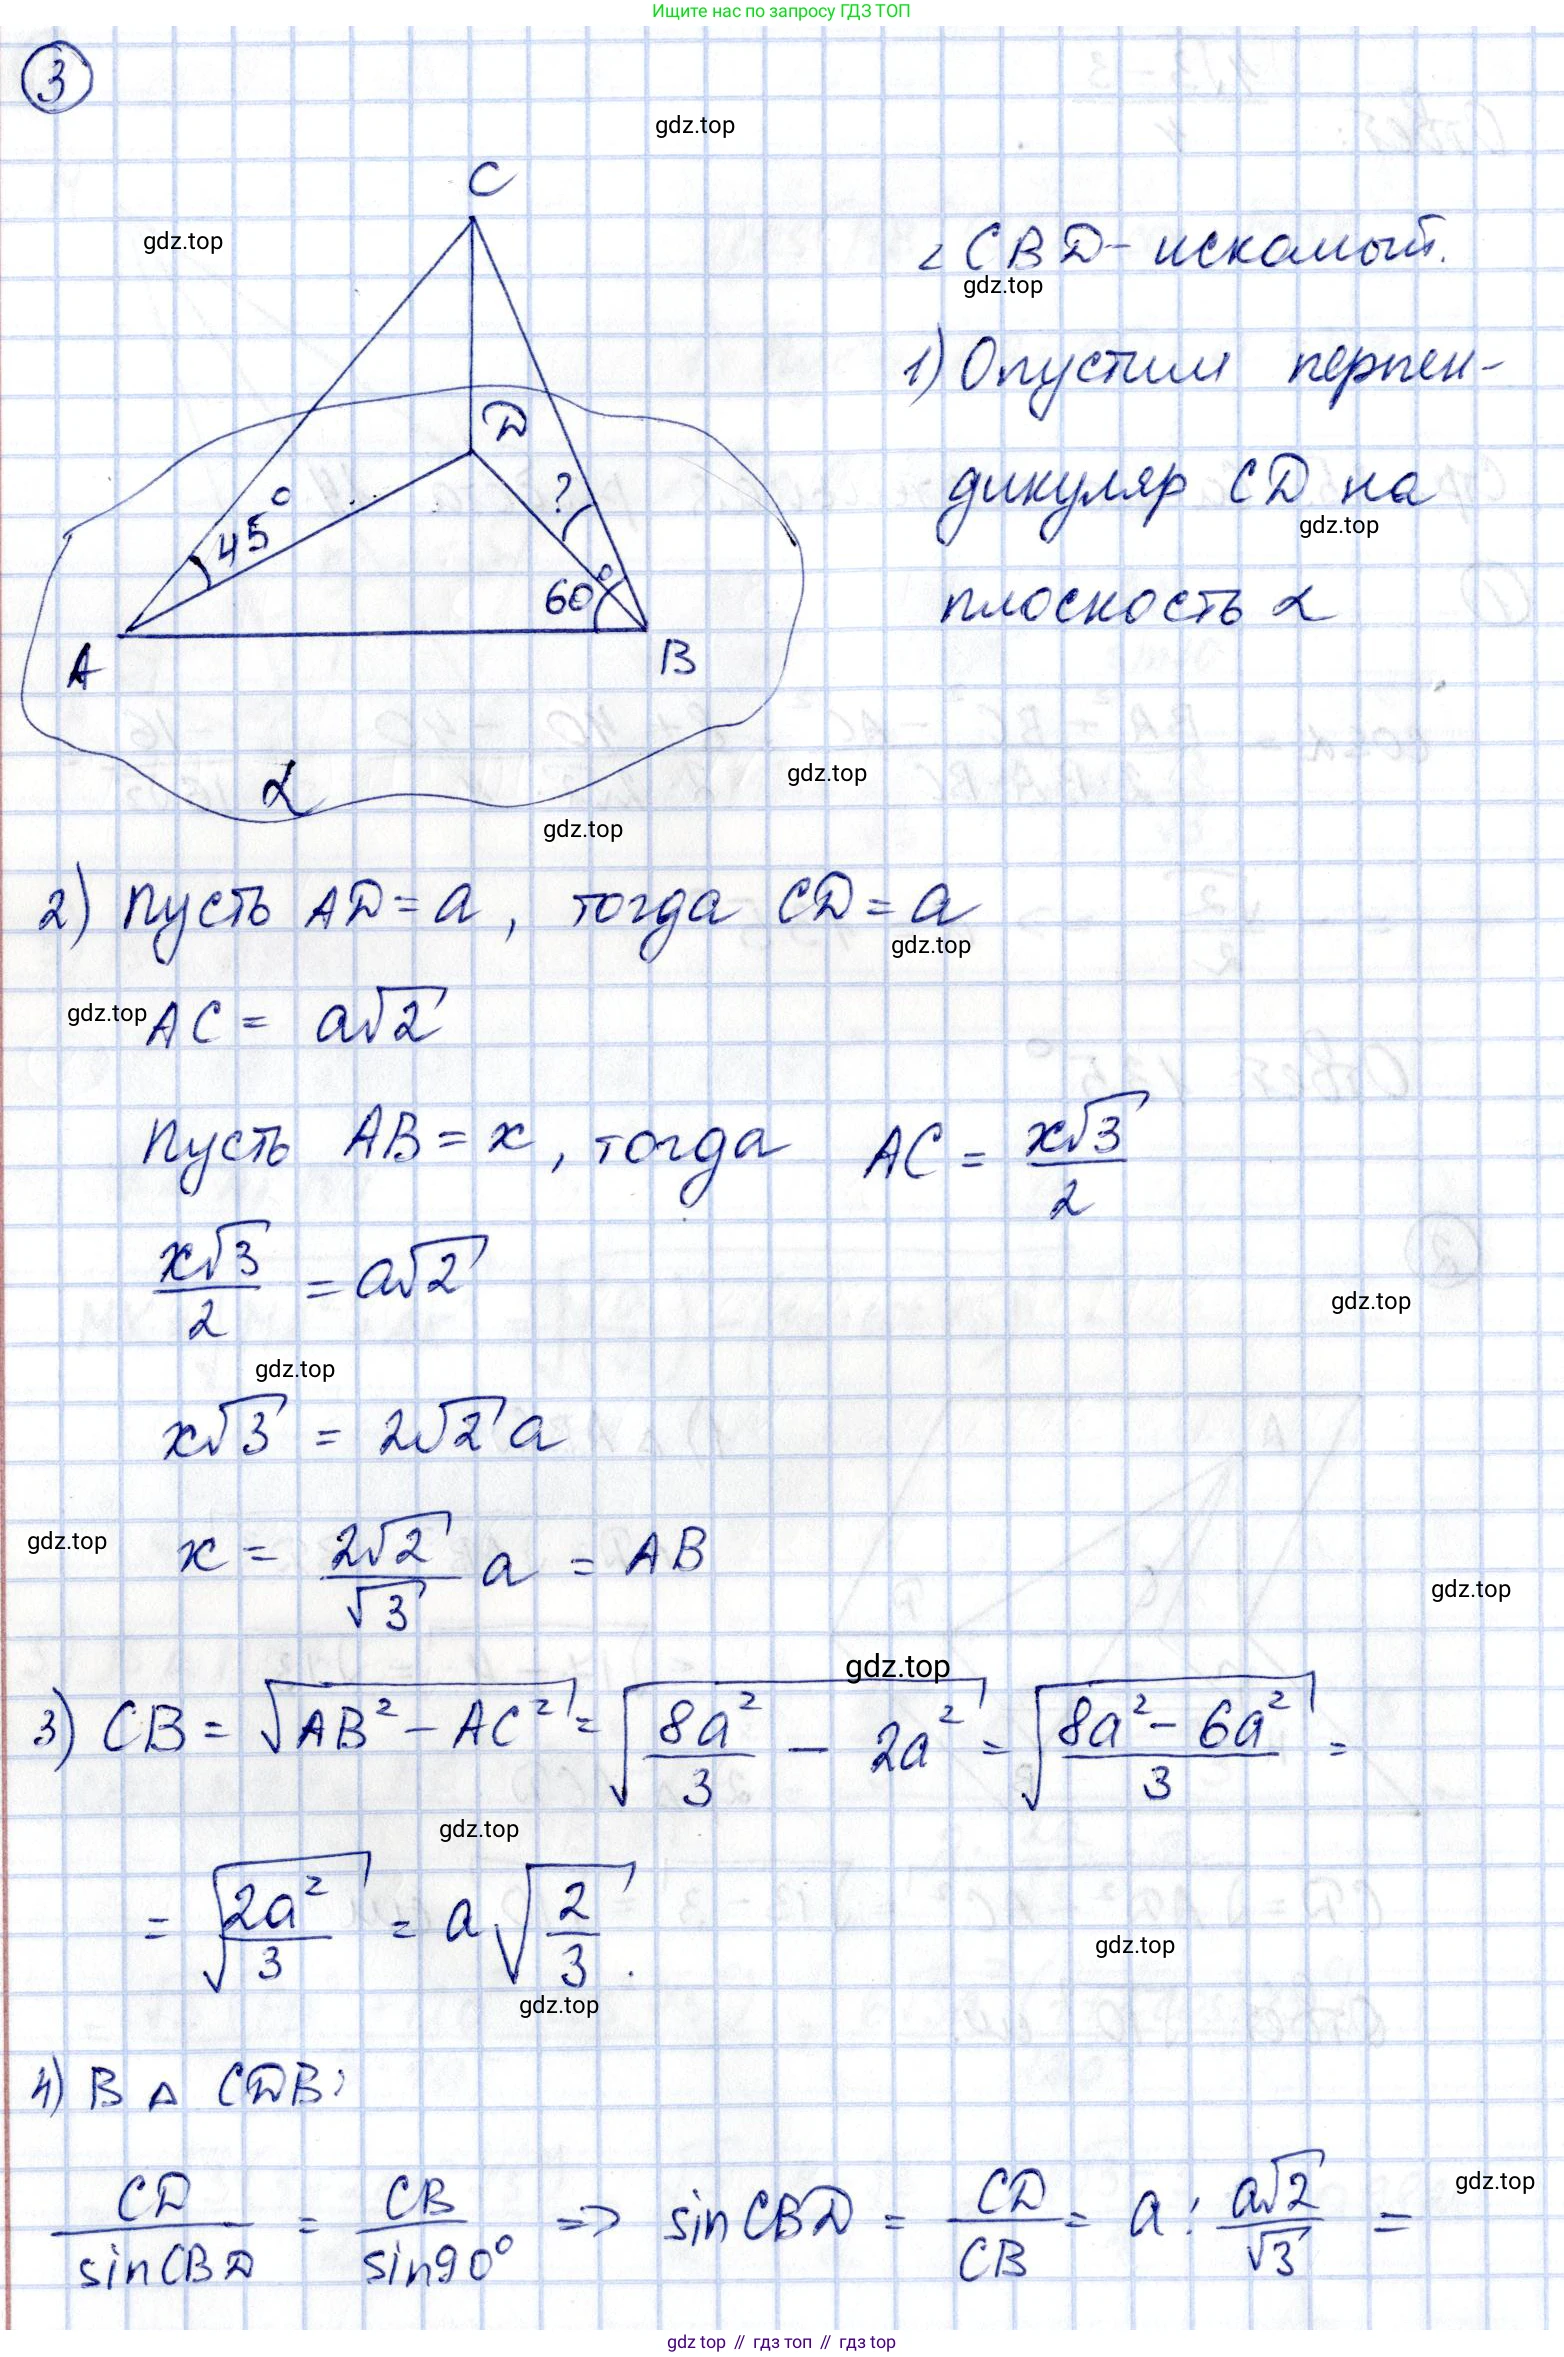 Ищите нас по запросу ГДЗ ТОП
3
gdz.top
C
gdz.top
∠ CBD - искомый.
gdz.top
1) Опустим перпен-
D
45°
?
дикуляр CD на
gdz.top
60°
плоскость α
A
B
α
gdz.top
gdz.top
2) Пусть AD = a, тогда CD = a
gdz.top
gdz.top
AC = a√2
Пусть AB = x, тогда AC = x√3/2
x√3/2 = a√2
gdz.top
gdz.top
x√3 = 2√2 a
gdz.top
x = 2√2/√3 a = AB
gdz.top
gdz.top
3) CB = √(AB² - AC²) = √(8a²/3 - 2a²) = √((8a² - 6a²)/3) =
gdz.top
= √(2a²/3) = a√(2/3).
gdz.top
gdz.top
4) В Δ CDB:
gdz.top
CD/sinCBD = CB/sin90° => sinCBD = CD/CB = a : a√2/√3 =
gdz top // гдз топ // гдз top